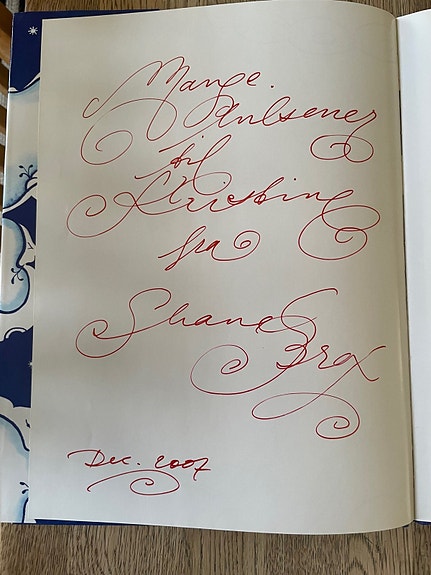 Mange.
Hilsener
til
Kristine
fra
Shane
Brox
Dec. 2007